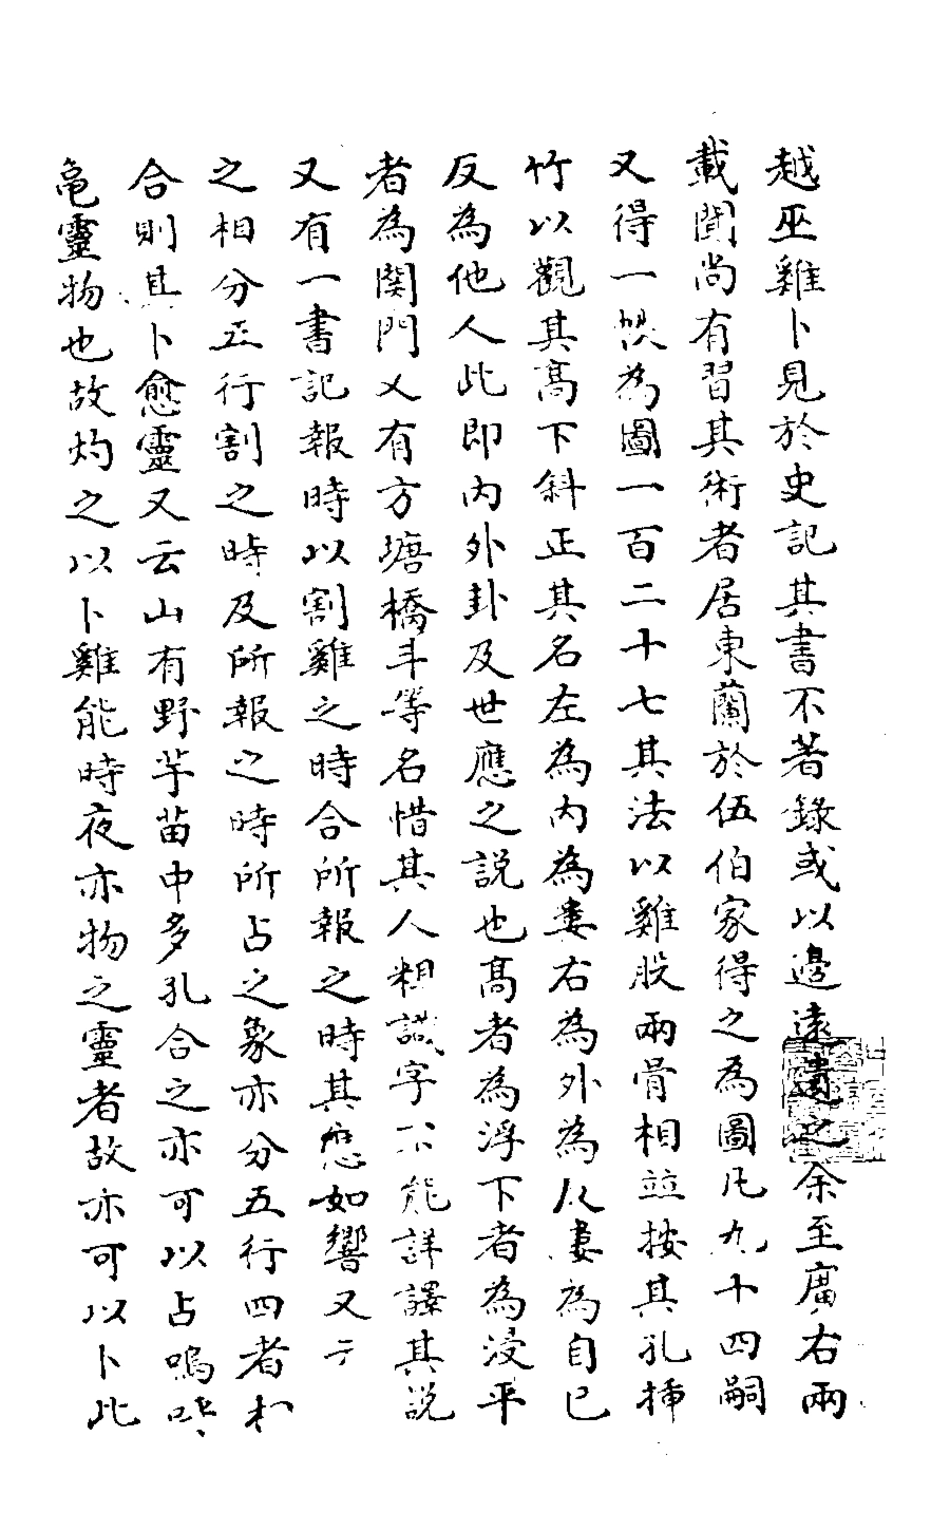 越巫雞卜見於史記其書不著錄或以邊遠遺之余至廣右兩
載聞尚有習其術者居東蘭於伍伯家得之為圖凡九十四嗣
又得一帙為圖一百二十七其法以雞股兩骨相並按其孔揷
竹以觀其高下斜正其名左為內為婁右為外為人婁為自己
反為他人此即內外卦及世應之說也高者為浮下者為浸平
者為関門又有方塘橋斗等名惜其人粗識字不能詳譯其說
又有一書記報時以割雞之時合所報之時其應如響又于
之相分五行割之時及所報之時所占之象亦分五行四者相
合則其卜愈靈又云山有野芋苗中多孔合之亦可以占嗚呼
龜靈物也故灼之以卜雞能時夜亦物之靈者故亦可以卜此